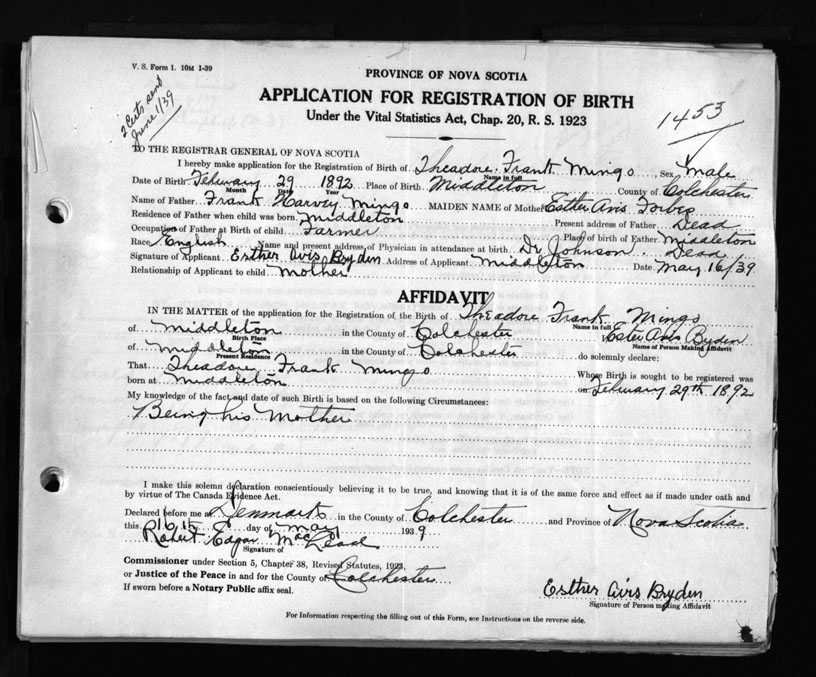 V. S. Form 1. 10M 1-39
2 Certs sent
June 1/39
PROVINCE OF NOVA SCOTIA
APPLICATION FOR REGISTRATION OF BIRTH
Under the Vital Statistics Act, Chap. 20, R. S. 1923
1453
TO THE REGISTRAR GENERAL OF NOVA SCOTIA
I hereby make application for the Registration of Birth of Theadore Frank Mingo Sex Male
Name in full
Date of Birth February 29 1892 Place of Birth Middleton County of Colchester
Month Date Year
Name of Father Frank Harvey Mingo MAIDEN NAME of Mother Esther Avis Forbes
Residence of Father when child was born Middleton Present address of Father Dead
Occupation of Father at Birth of child Farmer Place of birth of Father Middleton
Race English Name and present address of Physician in attendance at birth Dr Johnson Dead
Signature of Applicant Esther Avis Bryden Address of Applicant Middleton Date May 16/39
Relationship of Applicant to child Mother
AFFIDAVIT
IN THE MATTER of the application for the Registration of the Birth of Theadore Frank Mingo
Name in full
of Middleton in the County of Colchester I, Ester Avis Bryden
Birth Place Name of Person Making Affidavit
of Middleton in the County of Colchester do solemnly declare:
Present Residence
That Theadore Frank Mingo Whose Birth is sought to be registered was
born at Middleton on February 29th 1892
My knowledge of the fact and date of such Birth is based on the following Circumstances:
Being his Mother
I make this solemn declaration conscientiously believing it to be true, and knowing that it is of the same force and effect as if made under oath and
by virtue of The Canada Evidence Act.
Declared before me at Denmark in the County of Colchester and Province of Nova Scotia
this day of May 1939
Robert Edgar MacLeod
Signature of
Commissioner under Section 5, Chapter 38, Revised Statutes, 1923,
or Justice of the Peace in and for the County of Colchester
If sworn before a Notary Public affix seal.
Esther Avis Bryden
Signature of Person making Affidavit
For Information respecting the filling out of this Form, see Instructions on the reverse side.